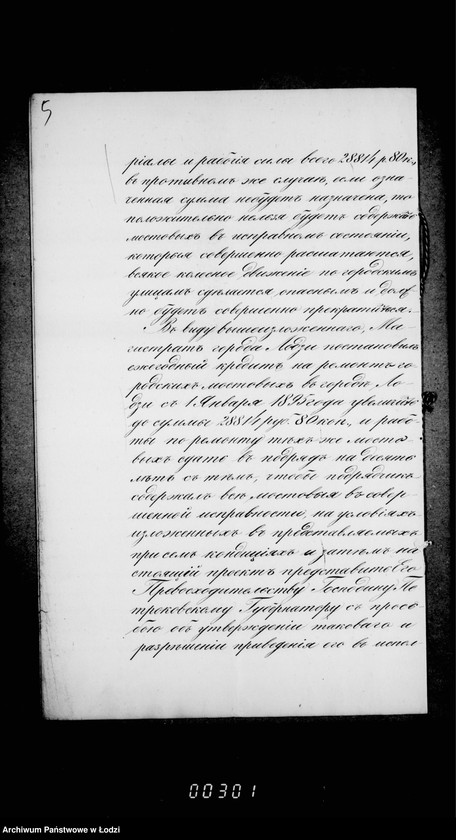 5
ріалы и рабочія силы всего 28814 р. 80 к.,
въ противномъ же случаѣ, если озна-
ченная сумма небудетъ назначена, то
положительно нельзя будетъ содержать
мостовыхъ въ исправномъ состояніи,
которыя совершенно расшатаются,
всякое колесное движеніе по городскимъ
улицамъ сдѣлается опаснымъ и долж
но будетъ совершенно прекратиться.
Въ виду вышеизложеннаго, Ма-
гистратъ города Лодзи постановилъ
ежегодный кредитъ на ремонтъ го-
родскихъ мостовыхъ въ городѣ Ло-
дзи съ 1 Января 1895 года увеличить
до суммы 28814 руб. 80 коп., и рабо-
ты по ремонту тѣхъ же мосто-
выхъ сдать въ подрядъ на десять
лѣтъ съ тѣмъ, чтобы подрядчикъ
содержалъ всѣ мостовыя въ совер-
шенной исправности, на условіяхъ
изложенныхъ въ представляемыхъ
при семъ кондиціяхъ и затѣмъ на
стоящій проектъ представить Его
Превосходительству Господину Пе
троковскому Губернатору съ прось-
бою объ утвержденіи таковаго и
разрѣшеніи приведенія его въ испол
00301
Archiwum Państwowe w Łodzi